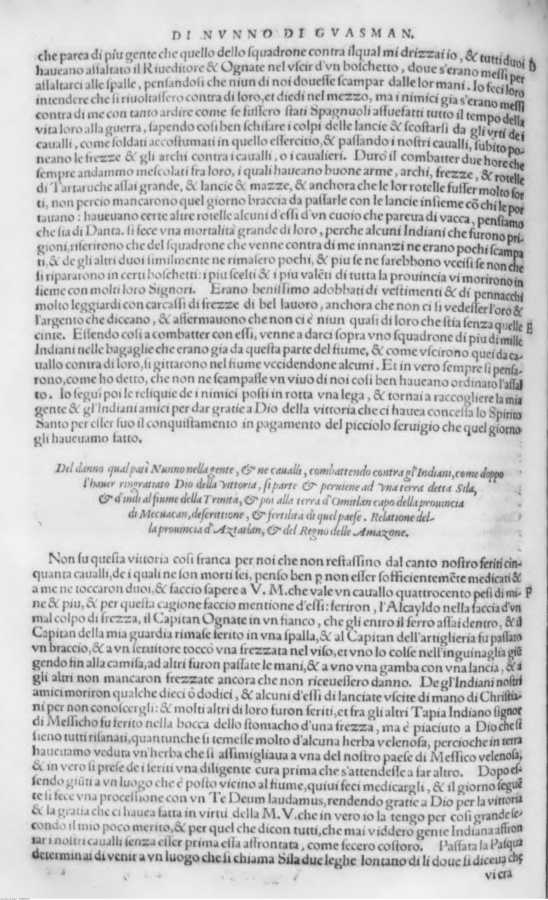 DI NVNNO DI GVASMAN.
che parea di piu gente che quello dello squadrone contra il qual mi drizzai io, & tutti duoi
haueano assaltato il Riueditore & Ognate nel vscir d'vn boschetto, doue s'erano messi per
assaltarci alle spalle, pensandosi che niun di noi douesse scampar dalle lor mani. Io feci loro
intendere che si riuoltassero contra di loro, et diedi nel mezzo, ma i nimici gia s'erano messi
contra di me con tanto ardire come se fussero stati Spagnuoli assuefatti tutto il tempo della
vita loro alla guerra, sapendo cosi ben schifare i colpi delle lancie & scostarsi da gli vrti dei
caualli, come soldati accostumati in quello essercitio, & passando i nostri caualli, subito po-
neano le frezze & gli archi contra i caualli, o i caualieri. Durò il combatter due hore che
sempre andammo mescolati fra loro, i quali haueano buone arme, archi, frezze, & rotelle
di Tartaruche assai grande, & lancie & mazze, & anchora che le lor rotelle fusser molto for
ti, non percio mancarono quel giorno braccia da passarle con le lancie insieme cō chi le por
tauano: haueuano certe altre rotelle alcuni d'essi d'vn cuoio che pareua di vacca, pensiamo
che sia di Danta. si fece vna mortalita grande di loro, perche alcuni Indiani che furono pri-
gioni, riferirono che del squadrone che venne contra di me innanzi ne erano pochi scampa
ti, & de gli altri duoi similmente ne rimasero pochi, & piu se ne sarebbono vccisi se non che
si ripararono in certi boschetti: i piu scelti & i piu valēti di tutta la prouincia vi morirono in
sieme con molti loro Signori. Erano benissimo adobbati di vestimenti & di pennacchi
molto leggiardi con carcassi di frezze di bel lauoro, anchora che non ci si vedesser l'oro &
l'argento che diceano, & affermauono che non ci è niun quasi di loro che stia senza quelle E
cinte. Essendo cosi a combatter con essi, venne a darci sopra vno squadrone di piu di mille
Indiani nelle bagaglie che erano gia da questa parte del fiume, & come vscirono quei da ca-
uallo contra di loro, si gittarono nel fiume vccidendone alcuni. Et in vero sempre si pensa-
rono, come ho detto, che non ne scampasse vn viuo di noi cosi ben haueano ordinato l'assal
to. Io segui poi le reliquie de i nimici posti in rotta vna lega, & tornai a raccogliere la mia
gente & gl'Indiani amici per dar gratie a Dio della vittoria che ci hauea concessa lo Spirito
Santo per esser suo il conquistamento in pagamento del picciolo seruigio che quel giorno
gli haueuamo fatto.
Del danno qual patì Nunno nella gente, & ne caualli, combattendo contra gl'Indiani, come doppo
l'hauer ringratiato Dio della vittoria, si parte & peruiene ad vna terra detta Sila,
& d'indi al fiume della Trinità, & poi alla terra d'Omitlan capo della prouincia
di Mecuacan, descrittione, & fertilità di quel paese. Relatione del-
la prouincia d'Aztatlan, & del Regno delle Amazone.
Non fu questa vittoria cosi franca per noi che non restassino dal canto nostro feriti cin-
quanta caualli, de i quali ne son morti sei, penso ben p non esser sofficientemēte medicati &
a me ne toccaron duoi, & faccio sapere a V. M. che vale vn cauallo quattrocento pesi di mi- F
ne & piu, & per questa cagione faccio mentione d'essi: feriron, l'Alcayldo nella faccia d'vn
mal colpo di frezza, il Capitan Ognate in vn fianco, che gli entro il ferro assai dentro, & il
Capitan della mia guardia rimase ferito in vna spalla, & al Capitan dell'artiglieria fu passato
vn braccio, & a vn seruitore toccò vna frezzata nel viso, et vno lo colse nell'inguinaglia giū
gendo fin alla camisa, ad altri furon passate le mani, & a vno vna gamba con vna lancia, & a
gli altri non mancaron frezzate ancora che non riceuessero danno. De gl'Indiani nostri
amici moriron qualche dieci ò dodici, & alcuni d'essi di lanciate vscite di mano di Christia-
ni per non conoscergli: & molti altri di loro furon feriti, et fra gli altri Tapia Indiano signor
di Messicho fu ferito nella bocca dello stomacho d'vna frezza, ma è piaciuto a Dio che si
sieno tutti risanati, quantunche si temesse molto d'alcuna herba velenosa, percioche in terra
haueuamo veduta vn'herba che si assimigliaua a vna del nostro paese di Messico velenosa,
& in vero si prese de i feriti vna diligente cura prima che s'attendesse a far altro. Dopo es-
sendo giūti a vn luogo che è posto vicino al fiume, quiui feci medicargli, & il giorno seguē
te si fece vna processione con vn Te Deum laudamus, rendendo gratie a Dio per la vittoria
& la gratia che ci hauea fatta in virtù della M.V. che in vero io la tengo per cosi grande se-
condo il mio poco merito, & per quel che dicon tutti, che mai viddero gente Indiana affron
tar i nostri caualli senza esser prima essa affrontata, come fecero costoro. Passata la Pasqua
determinai di venir a vn luogo che si chiama Sila due leghe lontano di li doue si diceua che
vi era